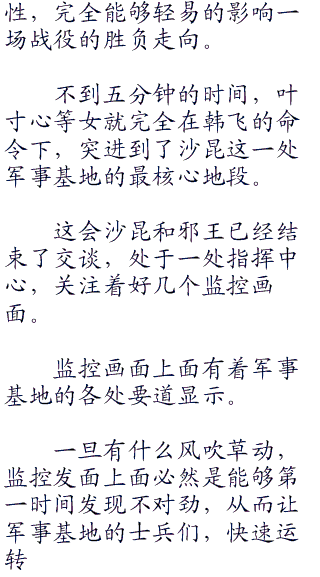 性，完全能够轻易的影响一
场战役的胜负走向。
不到五分钟的时间，叶
寸心等女就完全在韩飞的命
令下，突进到了沙昆这一处
军事基地的最核心地段。
这会沙昆和邪王已经结
束了交谈，处于一处指挥中
心，关注着好几个监控画
面。
监控画面上面有着军事
基地的各处要道显示。
一旦有什么风吹草动，
监控发面上面必然是能够第
一时间发现不对劲，从而让
军事基地的士兵们，快速运
转